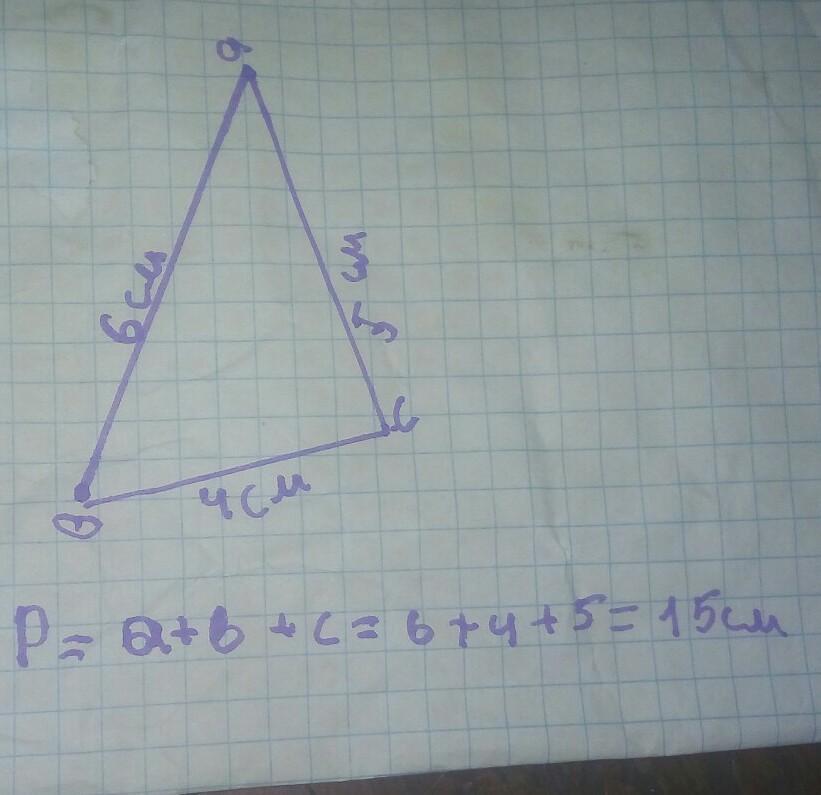 а
6 см
5 см
С
4 см
В
P = a + b + c = 6 + 4 + 5 = 15 см